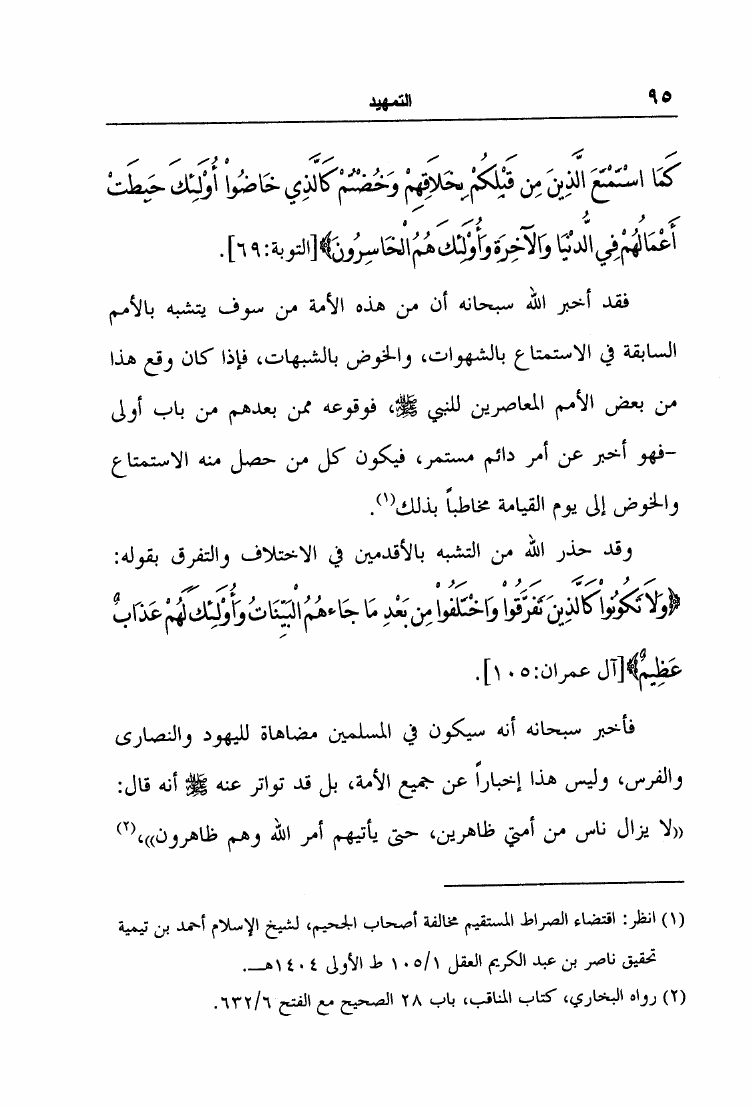 ٩٥
التمهيد
كَمَا اسْتَمْتَعَ الَّذِينَ مِن قَبْلِكُمْ بِخَلَاقِهِمْ وَخُضْتُمْ كَالَّذِي خَاضُواْ أُوْلَئِكَ حَبِطَتْ
أَعْمَالُهُمْ فِي الُّدنْيَا وَالآخِرَةِ وَأُوْلَئِكَ هُمُ الْخَاسِرُونَ﴾[التوبة:٦٩].
فقد أخبر الله سبحانه أن من هذه الأمة من سوف يتشبه بالأمم
السابقة في الاستمتاع بالشهوات، والخوض بالشبهات، فإذا كان وقع هذا
من بعض الأمم المعاصرين للنبي ﷺ، فوقوعه ممن بعدهم من باب أولى
-فهو أخبر عن أمر دائم مستمر، فيكون كل من حصل منه الاستمتاع
والخوض إلى يوم القيامة مخاطباً بذلك(١).
وقد حذر الله من التشبه بالأقدمين في الاختلاف والتفرق بقوله:
﴿وَلاَ تَكُونُواْ كَالَّذِينَ تَفَرَّقُواْ وَاخْتَلَفُواْ مِن بَعْدِ مَا جَاءهُمُ الْبَيِّنَاتُ وَأُوْلَئِكَ لَهُمْ عَذَابٌ
عَظِيمٌ﴾[آل عمران:١٠٥].
فأخبر سبحانه أنه سيكون في المسلمين مضاهاة لليهود والنصارى
والفرس، وليس هذا إخباراً عن جميع الأمة، بل قد تواتر عنه ﷺ أنه قال:
((لا يزال ناس من أمتي ظاهرين، حتى يأتيهم أمر الله وهم ظاهرون))،(٢)
(١) انظر: اقتضاء الصراط المستقيم مخالفة أصحاب الجحيم، لشيخ الإسلام أحمد بن تيمية
تحقيق ناصر بن عبد الكريم العقل ١٠٥/١ ط الأولى ١٤٠٤هـ.
(٢) رواه البخاري، كتاب المناقب، باب ٢٨ الصحيح مع الفتح ٦٣٢/٦.